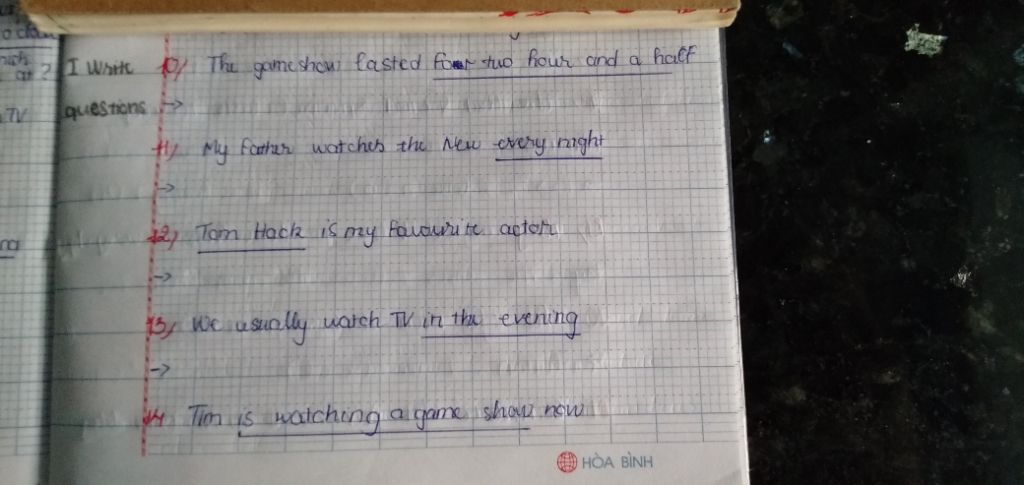 I Write
questions
10) The gameshow lasted for two hour and a half
->
11) My father watches the New every night
->
12) Tom Hack is my favourite actor
->
13) We usually watch TV in the evening
->
14 Tim is watching a game show now
HÒA BÌNH
TV